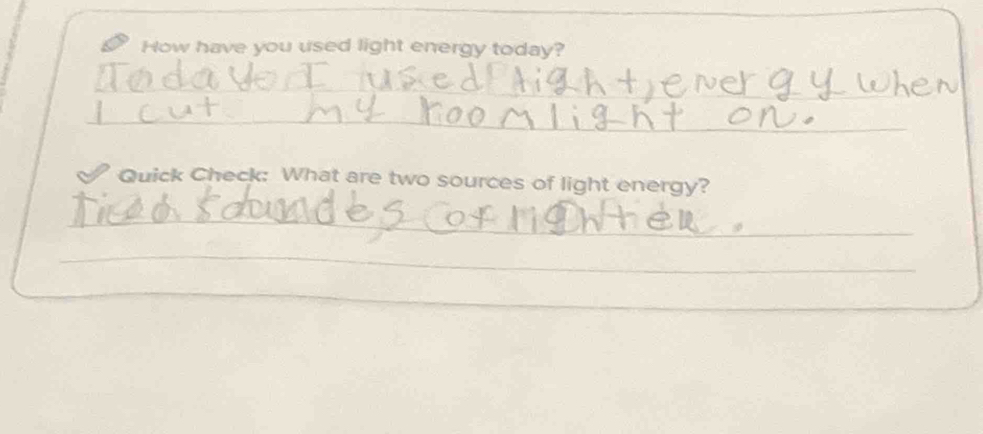 How have you used light energy today?
Today I used light, energy when
I cut my room light on.
Quick Check: What are two sources of light energy?
of